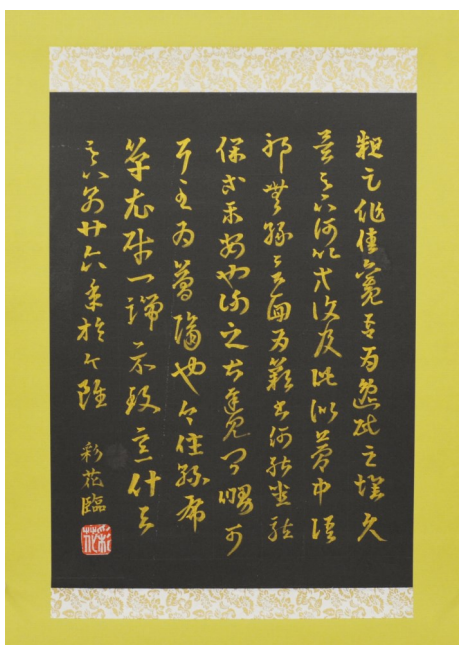 粗足作佳觀吾為逸民之懷久
矣足下何以方復及此似夢中語
耶無緣言面為歎書何能悉龍
保等平安也謝之甚遲見卿舅可
耳至為簡隔也今往絲布
單衣財一端示致意計與足
下別廿六年於今雖
彩花臨
彩花